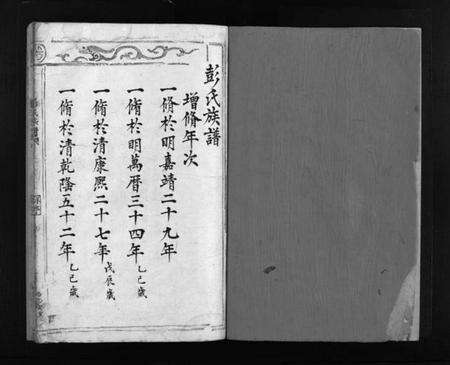 彭氏族譜
增脩年次
一脩於明嘉靖二十九年
一脩於明萬曆三十四年乙巳歲
一脩於清康熙二十七年戊辰歲
一脩於清乾隆五十二年乙巳歲